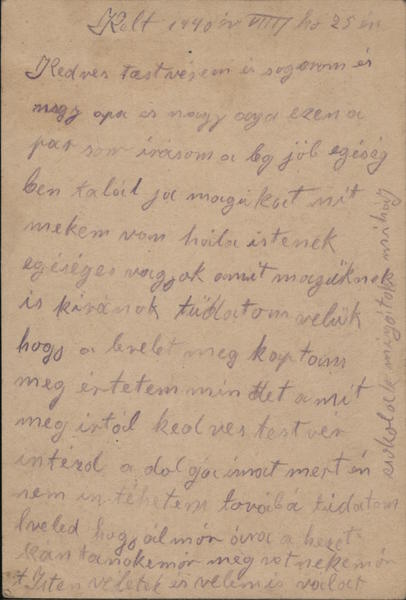 Kelt 1940 év VIIII hó 25 én
Kedves testvérem és sogorom és
nagy apa és nagy anya ezen a
pár sor írásom a leg jób egéség
ben talál ja magukat mit
nekem van hála istenek
egéséges vagyok amit magüknek
is kivánok tüdatom velük
hogy a levelet meg kaptam
meg értetem min det a mit
meg irtál kedves testver
intézd a dolgaimat mert én
nem in téhetem továbá tüdatom
hogy álmór óra a
kan tanokemór meg vot nekem ór
Isten veletek és velem is
csokolak mihály